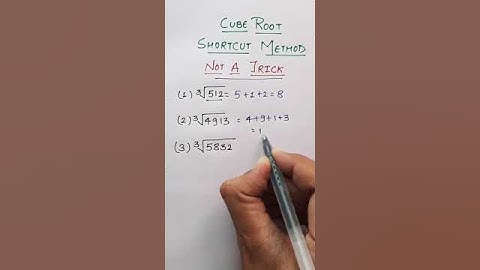 CUBE ROOT
SHORTCUT METHOD
NOT A TRICK
(1) ³√512 = 5+1+2=8
(2) ³√4913 = 4+9+1+3
= 1
(3) ³√5832